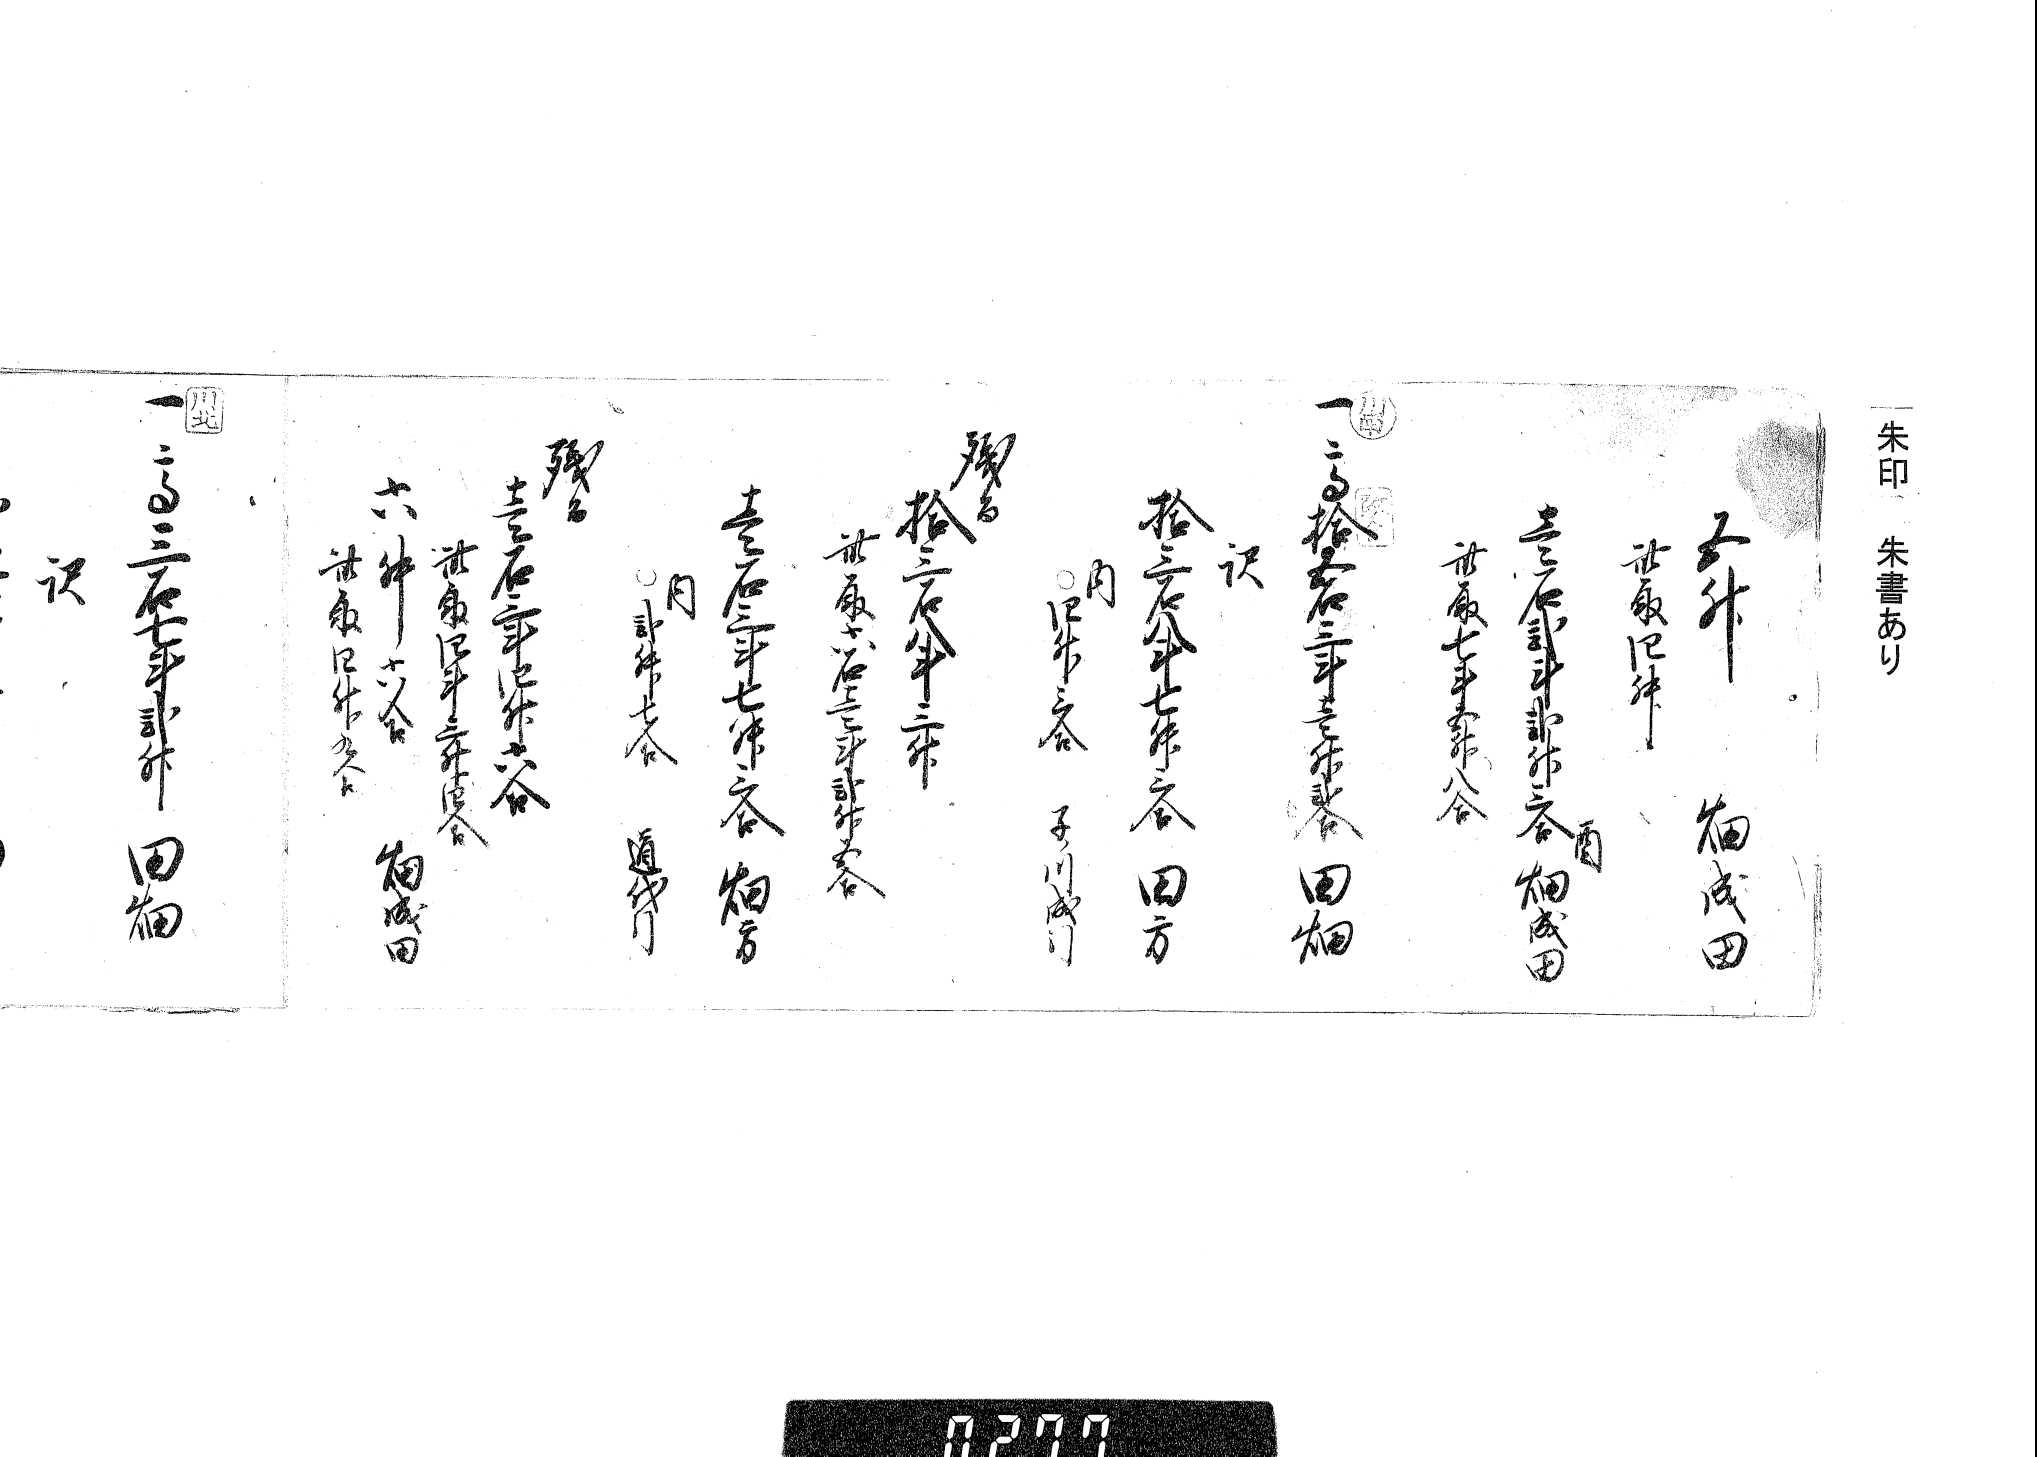 朱印 朱書あり
五升 畑成田
此取四升
壱石弐斗弐升三合 酉畑成田
此取七斗五升八合
川南
一 高拾五石三斗壱升弐合 田畑
訳
拾三石八斗七升三合 田方
内
○四升三合 子川成引
残而
拾三石八斗三升
此取六石壱斗弐升五合
壱石三斗七升三合 畑方
内
○弐升七合 道代引
残而
壱石三斗四升六合
此取四斗三升四合
六升六合 畑成田
此取四升九合
川北
一 高三石七斗弐升 田畑
訳
0277